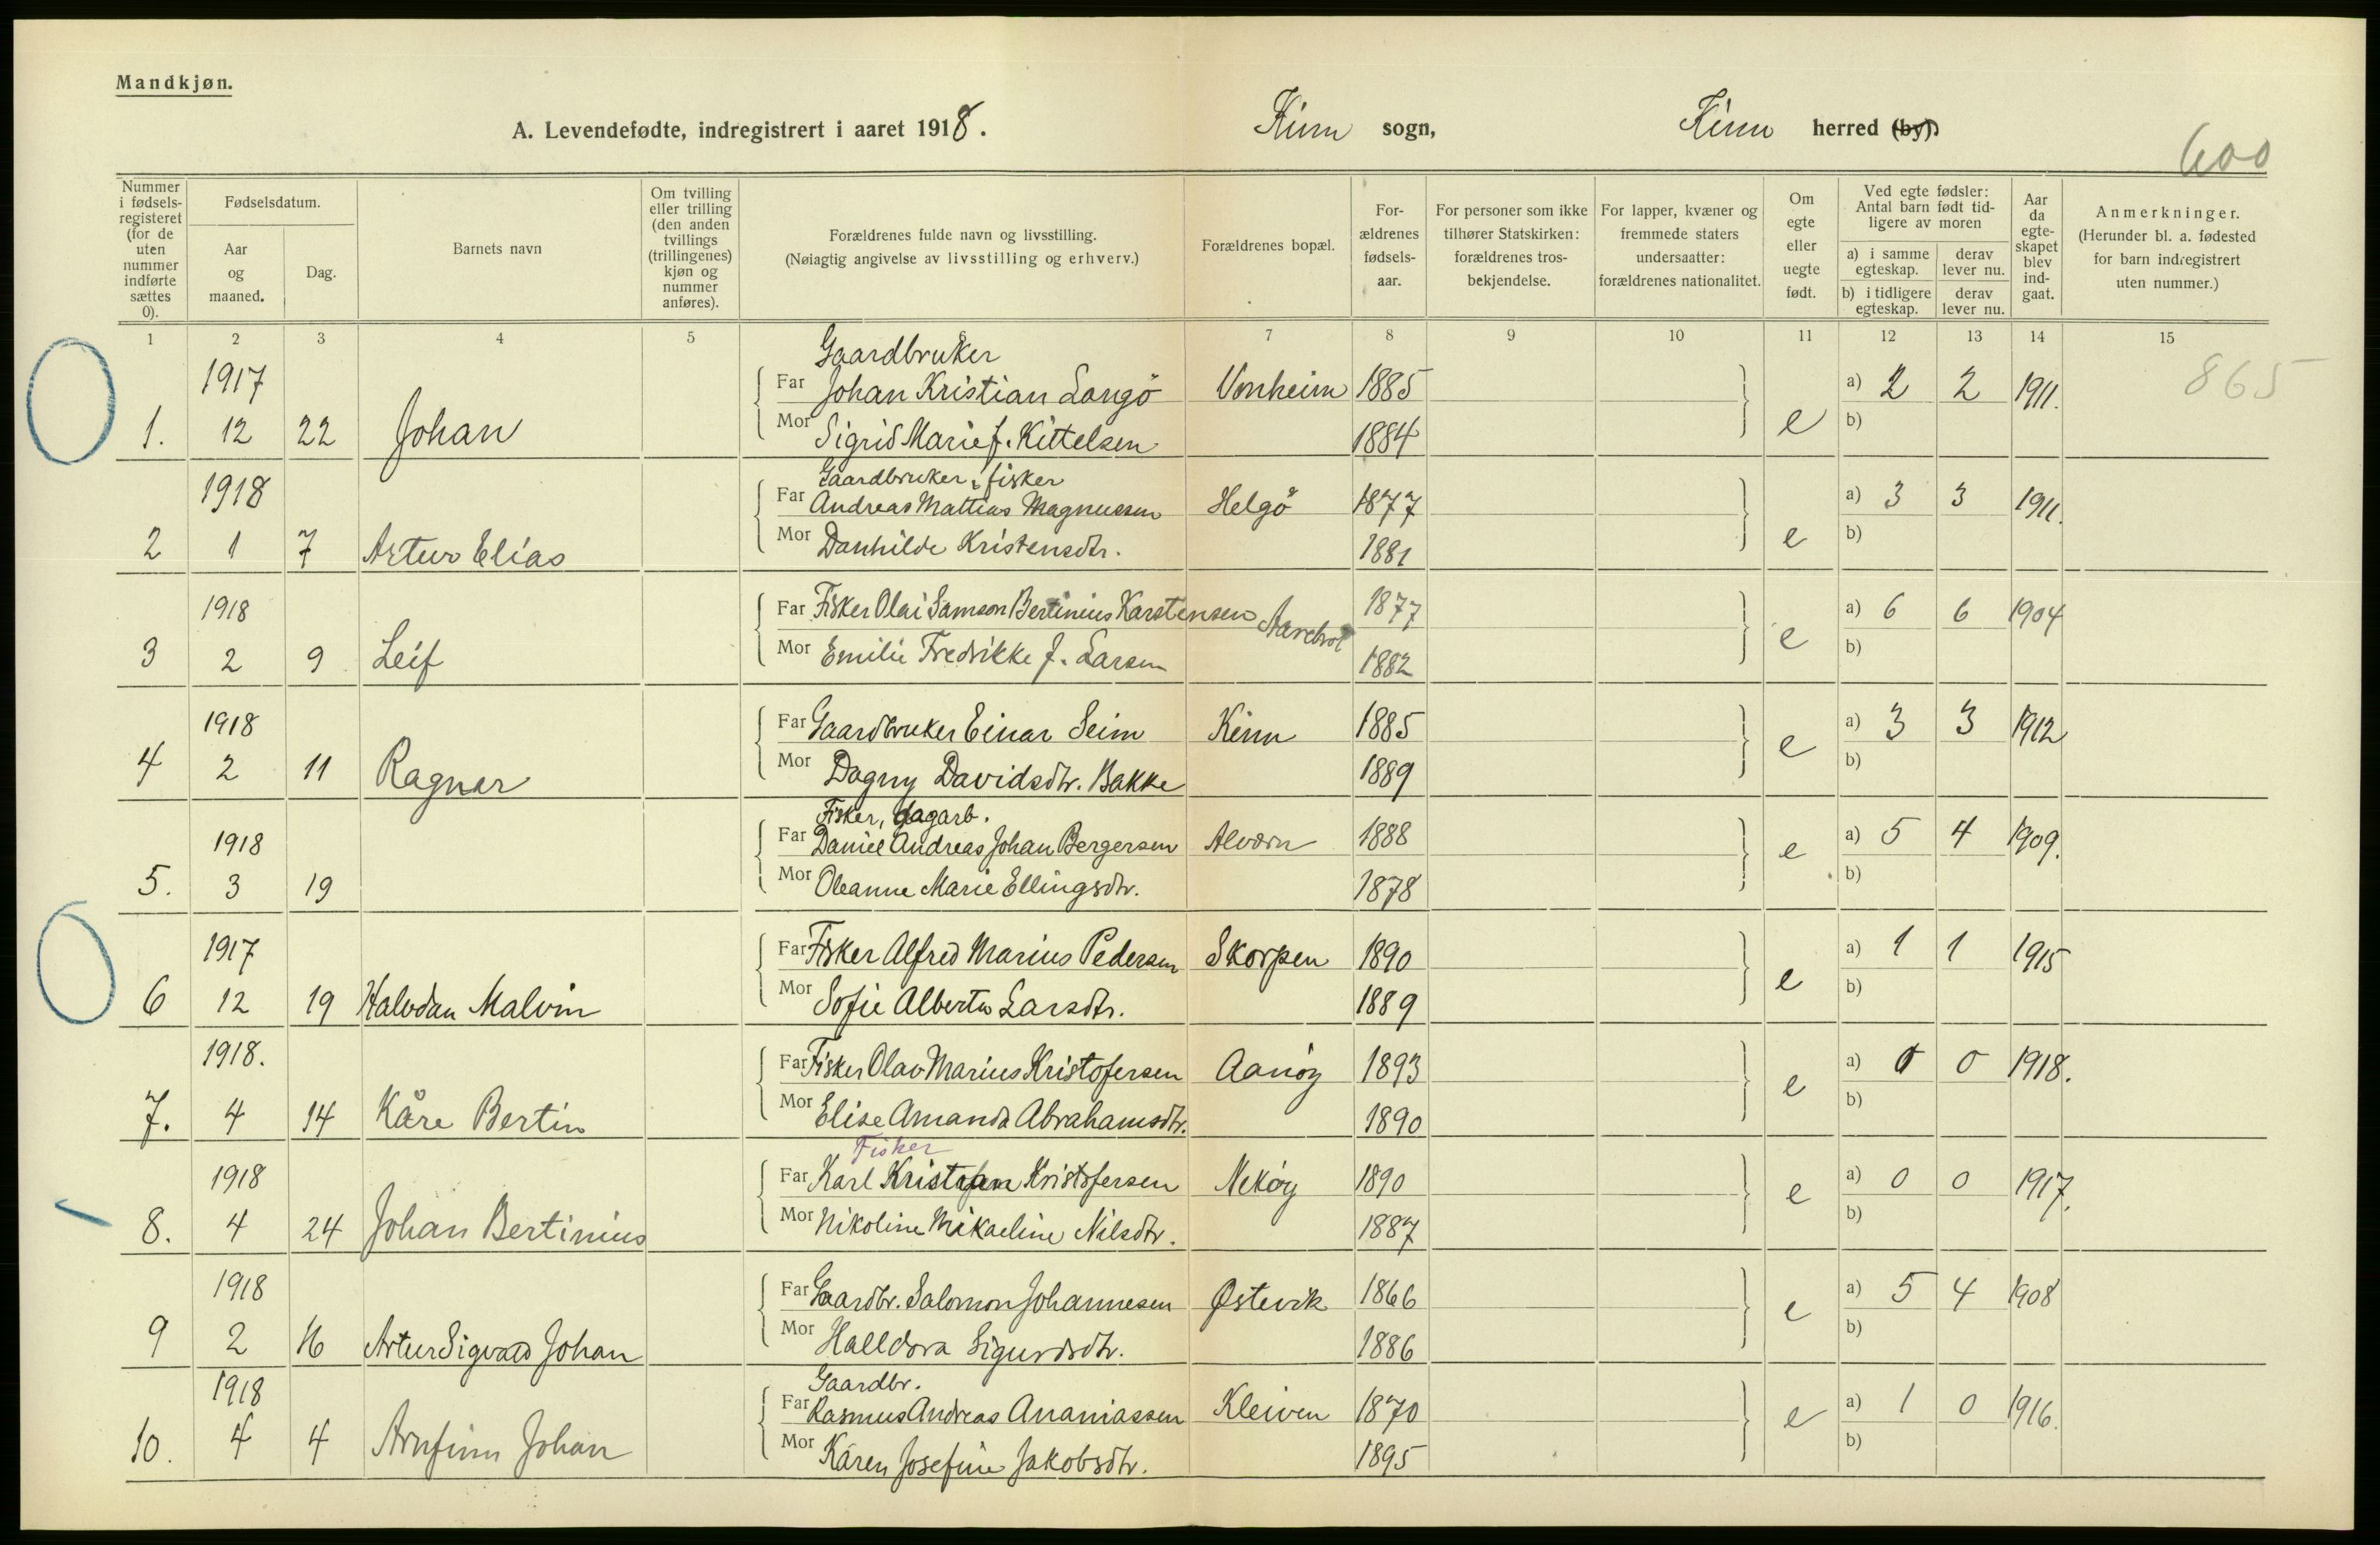 Mandkjøn.
A. Levendefødte, indregistrert i aaret 1918. Kinn sogn, Kinn herred (by).
600
Nummer i fødselsregisteret (for de uten nummer indførte sættes 0).
Fødselsdatum.
Aar og maaned.
Dag.
Barnets navn
Om tvilling eller trilling (den anden tvillings (trillingenes) kjøn og nummer anføres).
Forældrenes fulde navn og livsstilling.
(Nøiagtig angivelse av livsstilling og erhverv.)
Forældrenes bopæl.
Forældrenes fødselsaar.
For personer som ikke tilhører Statskirken: forældrenes trosbekjendelse.
For lapper, kvæner og fremmede staters undersaatter: forældrenes nationalitet.
Om egte eller uegte født.
Ved egte fødsler: Antal barn født tidligere av moren
a) i samme egteskap. derav lever nu.
b) i tidligere egteskap. derav lever nu.
Aar da egteskapet blev indgaat.
Anmerkninger.
(Herunder bl. a. fødested for barn indregistrert uten nummer.)
1 2 3 4 5 6 7 8 9 10 11 12 13 14 15
Gaardbruker
1917 Far Johan Kristian Langö Vonheim 1885 a) 2 2 1911. 865
1. 12 22 Johan Mor Sigrid Marie f. Kittelsen 1884 e b)
Gaardbruker, fisker
1918 Far Andreas Mattias Magnussen Helgö 1877 a) 3 3 1911.
2 1 7 Artur Elias Mor Danhilde Kristensdtr. 1881 e b)
1918 Far Fisker Olai Samson Bertinius Karstensen Aarebrot 1877 a) 6 6 1904
3 2 9 Leif Mor Emilie Fredrikke f. Larsen 1882 e b)
1918 Far Gaardbruker Einar Seim Kinn 1885 a) 3 3 1912
4 2 11 Ragnar Mor Dagny Davidsdtr. Bakke 1889 e b)
Fisker, dagarb.
1918 Far Daniel Andreas Johan Bergersen Alvøra 1888 a) 5 4 1909.
5. 3 19 Mor Oleanne Marie Ellingsdtr. 1878 e b)
1917 Far Fisker Alfred Marius Pedersen Skorpen 1890 a) 1 1 1915
6 12 19 Halvdan Malvin Mor Sofie Alberta Larsdtr. 1889 e b)
1918. Far Fisker Olav Marius Kristofersen Aanöy 1893 a) 0 0 1918.
7. 4 14 Kåre Bertin Mor Elise Amanda Abrahamsdtr. 1890 e b)
Fisker
1918 Far Karl Kristian Kristofersen Nekøy 1890 a) 0 0 1917.
8. 4 24 Johan Bertinius Mor Nikoline Mikaeline Nilsdtr. 1887 e b)
1918 Far Gaardbr. Salomon Johannesen Østevik 1866 a) 5 4 1908
9 2 16 Artur Sigvald Johan Mor Halldora Sigurdsdtr. 1886 e b)
Gaardbr.
1918 Far Rasmus Andreas Ananiassen Kleiven 1870 a) 1 0 1916.
10. 4 4 Arnfinn Johan Mor Karen Josefine Jakobsdtr. 1895 e b)